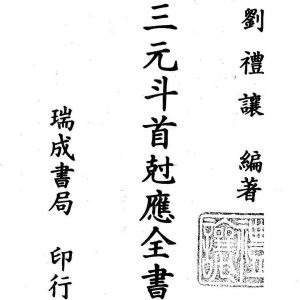 劉禮讓 編著
三元斗首尅應全書
瑞成書局 印行